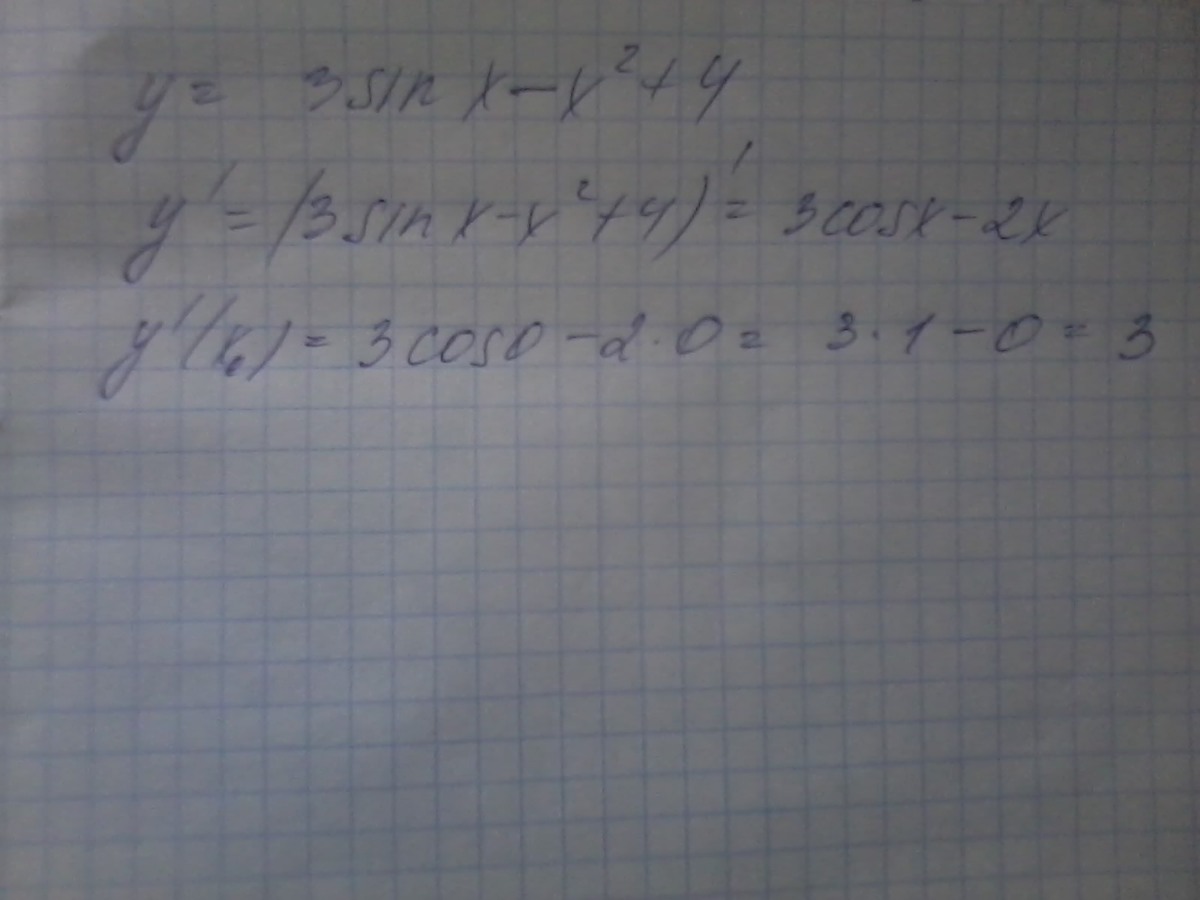 y = 3 sin x - x² + 4
y' = (3 sin x - x² + 4)' = 3 cos x - 2x
y'(x₀) = 3 cos 0 - 2 · 0 = 3 · 1 - 0 = 3